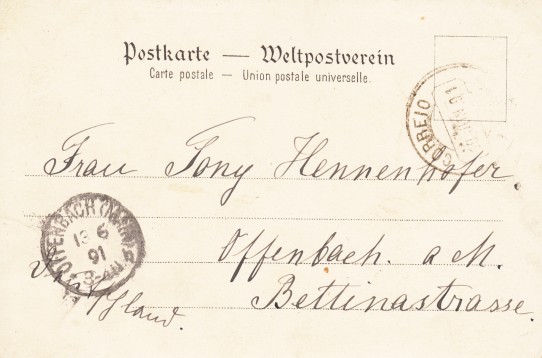 Postkarte — Weltpostverein
Carte postale — Union postale universelle.
CORREIO
Frau Tony Hennenhofer.
OFFENBACH (MAIN)
18 6
91
Offenbach a M.
Bettinastrasse.